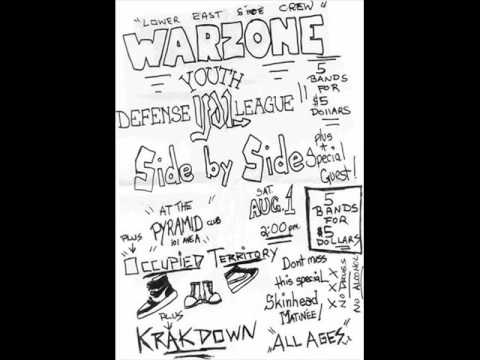 "LOWER EAST SIDE CREW"
WARZONE
YOUTH
DEFENSE YDL LEAGUE
5
BANDS
FOR
$5
DOLLARS
Side by Side
plus
+
Special
Guest!
"AT THE
PYRAMID CLUB
101 AVE A"
SAT.
AUG. 1
2:00 pm.
5
BANDS
FOR
$5
DOLLARS
PLUS
OCCUPIED TERRITORY
Dont miss
this special
Skinhead
MATINEE!
X X X
NO DRUGS
NO ALCOHOL
PLUS
KRAKDOWN
"ALL AGES"